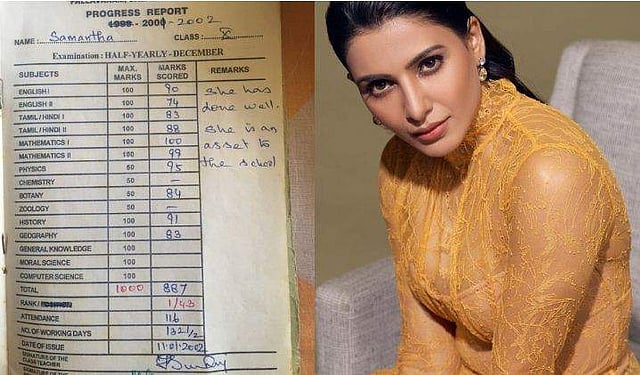 PROGRESS REPORT
1999 - 2001-2002
NAME : Samantha CLASS : X
Examination : HALF-YEARLY - DECEMBER
SUBJECTS MAX. MARKS MARKS SCORED REMARKS
ENGLISH I 100 90 She has
ENGLISH II 100 74 done well.
TAMIL / HINDI I 100 83
TAMIL / HINDI II 100 88 She is an
MATHEMATICS I 100 100 asset to
MATHEMATICS II 100 99 the school
PHYSICS 50 95
CHEMISTRY 50 —
BOTANY 50 84
ZOOLOGY 50 —
HISTORY 100 91
GEOGRAPHY 100 83
GENERAL KNOWLEDGE 100
MORAL SCIENCE 100
COMPUTER SCIENCE 100
TOTAL 1000 887
RANK / 1/43
ATTENDANCE 116
NO. OF WORKING DAYS 132 1/2
DATE OF ISSUE 11.01.2002
SIGNATURE OF THE
CLASS TEACHER
SIGNATURE OF THE